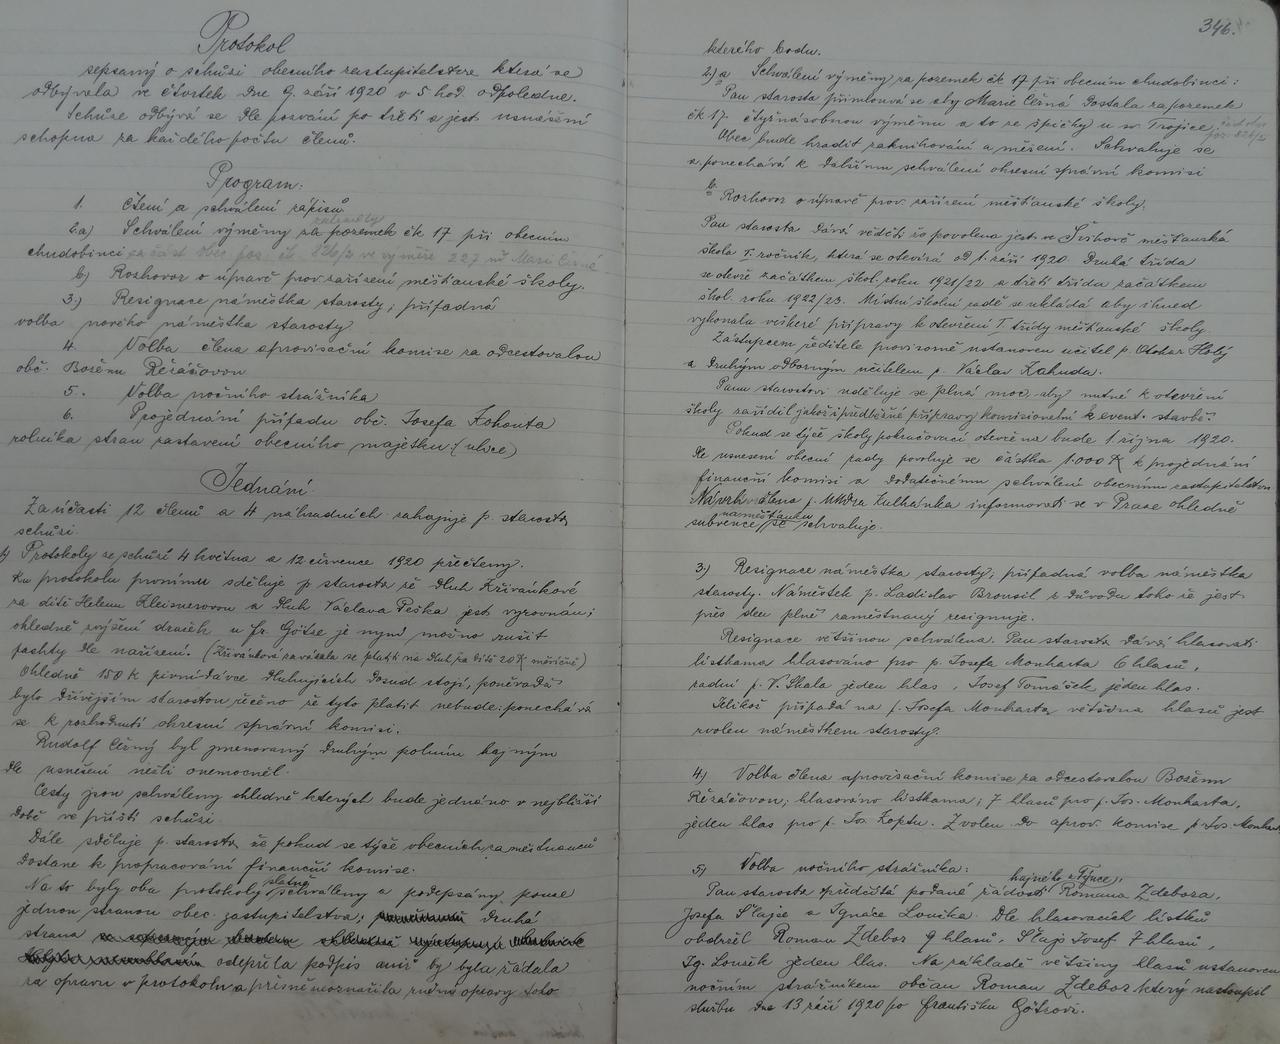 Protokol
sepsaný o schůzi obecního zastupitelstva která se
odbývala ve čtvrtek dne 9. září 1920 o 5 hod. odpoledne.
Schůze odbývá se dle pozvání po třetí a jest usnášení
schopna za každého počtu členů.
Program:
1. Čtení a schválení zápisů
2.a) Schválení výměny za pozemek čk 17 při obecním
chudobinci za část obec. poz. čk. 826/2 ve výměře 227 m² Marii Černé
b) Rozhovor o úpravě prov. zařízení měšťanské školy.
3.) Resignace náměstka starosty; případná
volba nového náměstka starosty
4. Volba člena aprovisační komise za odcestovalou
obč. Boženu Řezáčovou
5. Volba nočního strážníka
6. Projednání případu obč. Josefa Kohouta
rolníka stran zastavení obecního majetku (ulice)
Jednání.
Za účasti 12 členů a 4 náhradních zahajuje p. starosta
schůzi.
1) Protokoly ze schůzí 4 května a 12 července 1920 přečteny.
Ku protokolu prvnímu sděluje p. starosta že dluh Křivánkové
za dítě Helenu Kleisnerovou a dluh Václava Peška jest vyrovnán;
ohledně zvýšení dávek u Fr. Götze je nyní možno zrušit
pachty dle nařízení. (Křivánková zavázala se platit na dluh za dítě 20 K měsíčně)
Ohledně 150 K pivní dávce dosud stojí, poněvadž
bylo dřívějším starostou řečeno že tyto platit nebude: ponechává
se k rozhodnutí okresní správní komisi.
Rudolf Černý byl jmenovaný druhým polním hajným
dle usnešení nešli onemocněl.
Cesty jsou schváleny ohledně kterých bude jednáno v nejbližší
době ve příští schůzi
Dále sděluje p. starosta, že pokud se týče obecních zaměstnanců
dostane k propracování finanční komise.
Na to byly oba protokoly platně schváleny a podepsány pouze
jednou stranou obec. zastupitelstva; druhá
strana
odepřela podpis aniž by byla žádala
za opravu v protokolu a přísně neoznačila rudou opravy toto
346.
kterého bodu.
2.) a Schválení výměny za pozemek čk 17 při obecním chudobinci:
Pan starosta přimlouvá se aby Marie Černá dostala za pozemek
čk 17. čtyřnásobnou výměnu a to ze špičky u sv. Trojice,
Obec bude hradit zaknihování a měření. Schvaluje se
a ponechává k dalšímu schválení okresní správní komisi
b. Rozhovor o úpravě prov. zařízení měšťanské školy.
Pan starosta dává věděti že povolena jest ve Švihově měšťanská
škola I. ročník, která se otevírá od 1. září 1920. Druhá třída
se otevře začátkem škol. roku 1921/22 a třetí třída začátkem
škol. roku 1922/23. Místní školní radě se ukládá aby ihned
vykonala veškeré přípravy k otevření I. třídy měšťanské školy.
Zástupcem ředitele provisorně ustanoven učitel p. Otokar Holý
a druhým odborným učitelem p. Václav Kahuda.
Panu starostovi uděluje se plná moc, aby nutné k otevření
školy zařídil jakož i předběžné přípravy komisionelní k event. stavbě.
Pokud se týče školy pokračovací otevřena bude 1 října 1920.
Dle usnesení obecní rady povoluje se částka 1.000 K k projednání
finanční komisi a dodatečnému schválení obecnímu zastupitelstvu
Návrh člena p. MUDra Kulhánka informovati se v Praze ohledně
subvence náměstkou se schvaluje.
3.) Resignace náměstka starosty; případná volba náměstka
starosty. Náměstek p. Ladislav Brousil z důvodu toho že jest
přes den plně zaměstnaný resignuje.
Resignace většinou schválena. Pan starosta dává hlasovati
lístkama hlasováno pro p. Josefa Monharta 6 hlasů,
radní p. V. Skala jeden hlas, Josef Tomášek jeden hlas.
Jelikož připadá na p. Josefa Monharta většina hlasů jest
zvolen náměstkem starosty.
4.) Volba člena aprovisační komise za odcestovalou Boženu
Řezáčovou; hlasováno lístkama; 7 hlasů pro p. Jos. Monharta,
jeden hlas pro p. Jos Koptu. Zvolen do aprov. komise p. Jos. Monhart
5) Volba nočního strážníka:
Pan starosta předčítá podané žádosti hajného z Týnce, Romana Zdebora,
Josefa Šlajse a Ignáce Louška. Dle hlasovacích lístků
obdržel Roman Zdebor 9 hlasů, Šlajs Josef 7 hlasů,
Ig. Loušek jeden hlas. Na základě většiny hlasů ustanoven
nočním strážníkem občan Roman Zdebor který nastoupil
službu dne 13 září 1920 po Františku Götzovi.